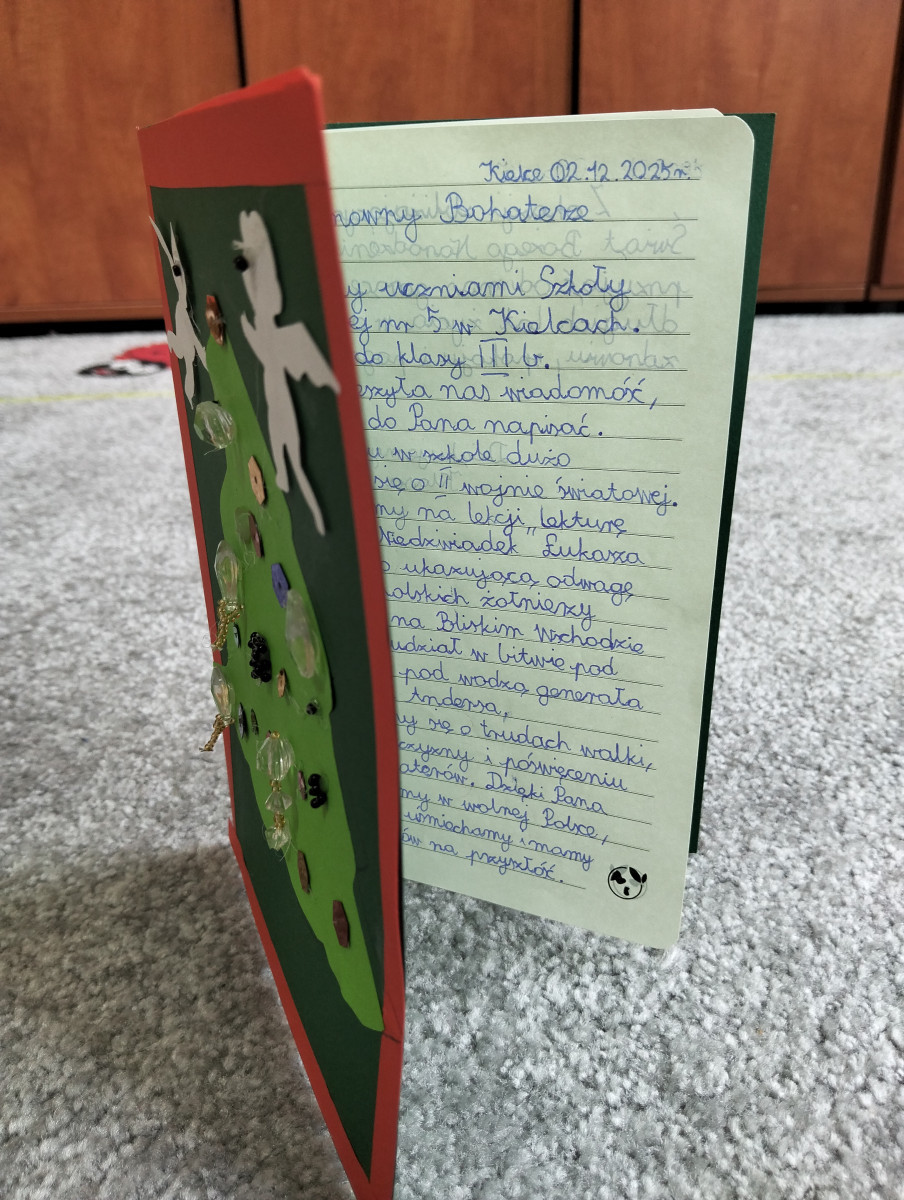 Kielce 02.12.2025r.
nowny Bohaterze
y uczniami Szkoły
ej nr 5 w Kielcach.
do klasy III b.
eszyła nas wiadomość,
do Pana napisać.
u w szkole dużo
się o II wojnie światowej.
my na lekcji „lekturę
Niedźwiadek Łukasza
o ukazującą odwagę
olskich żołnierzy
na Bliskim Wschodzie
udział w bitwie pod
pod wodzą generała
Andersa,
my się o trudach walki,
czyzny i poświęceniu
aterów. Dzięki Pana
my w wolnej Polsce,
uśmiechamy i mamy
ów na przyszłość.